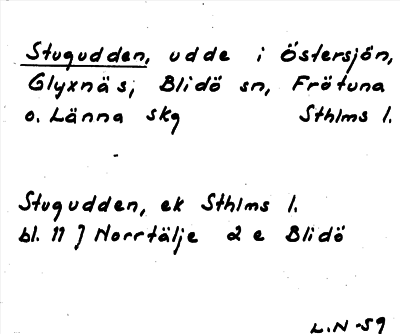 Stugudden, udde i Östersjön,
Glyxnäs, Blidö sn, Frötuna
o. Länna skg Sthlms l.
Stugudden, ek Sthlms l.
bl. 11 J Norrtälje 2 e Blidö
L.N-59